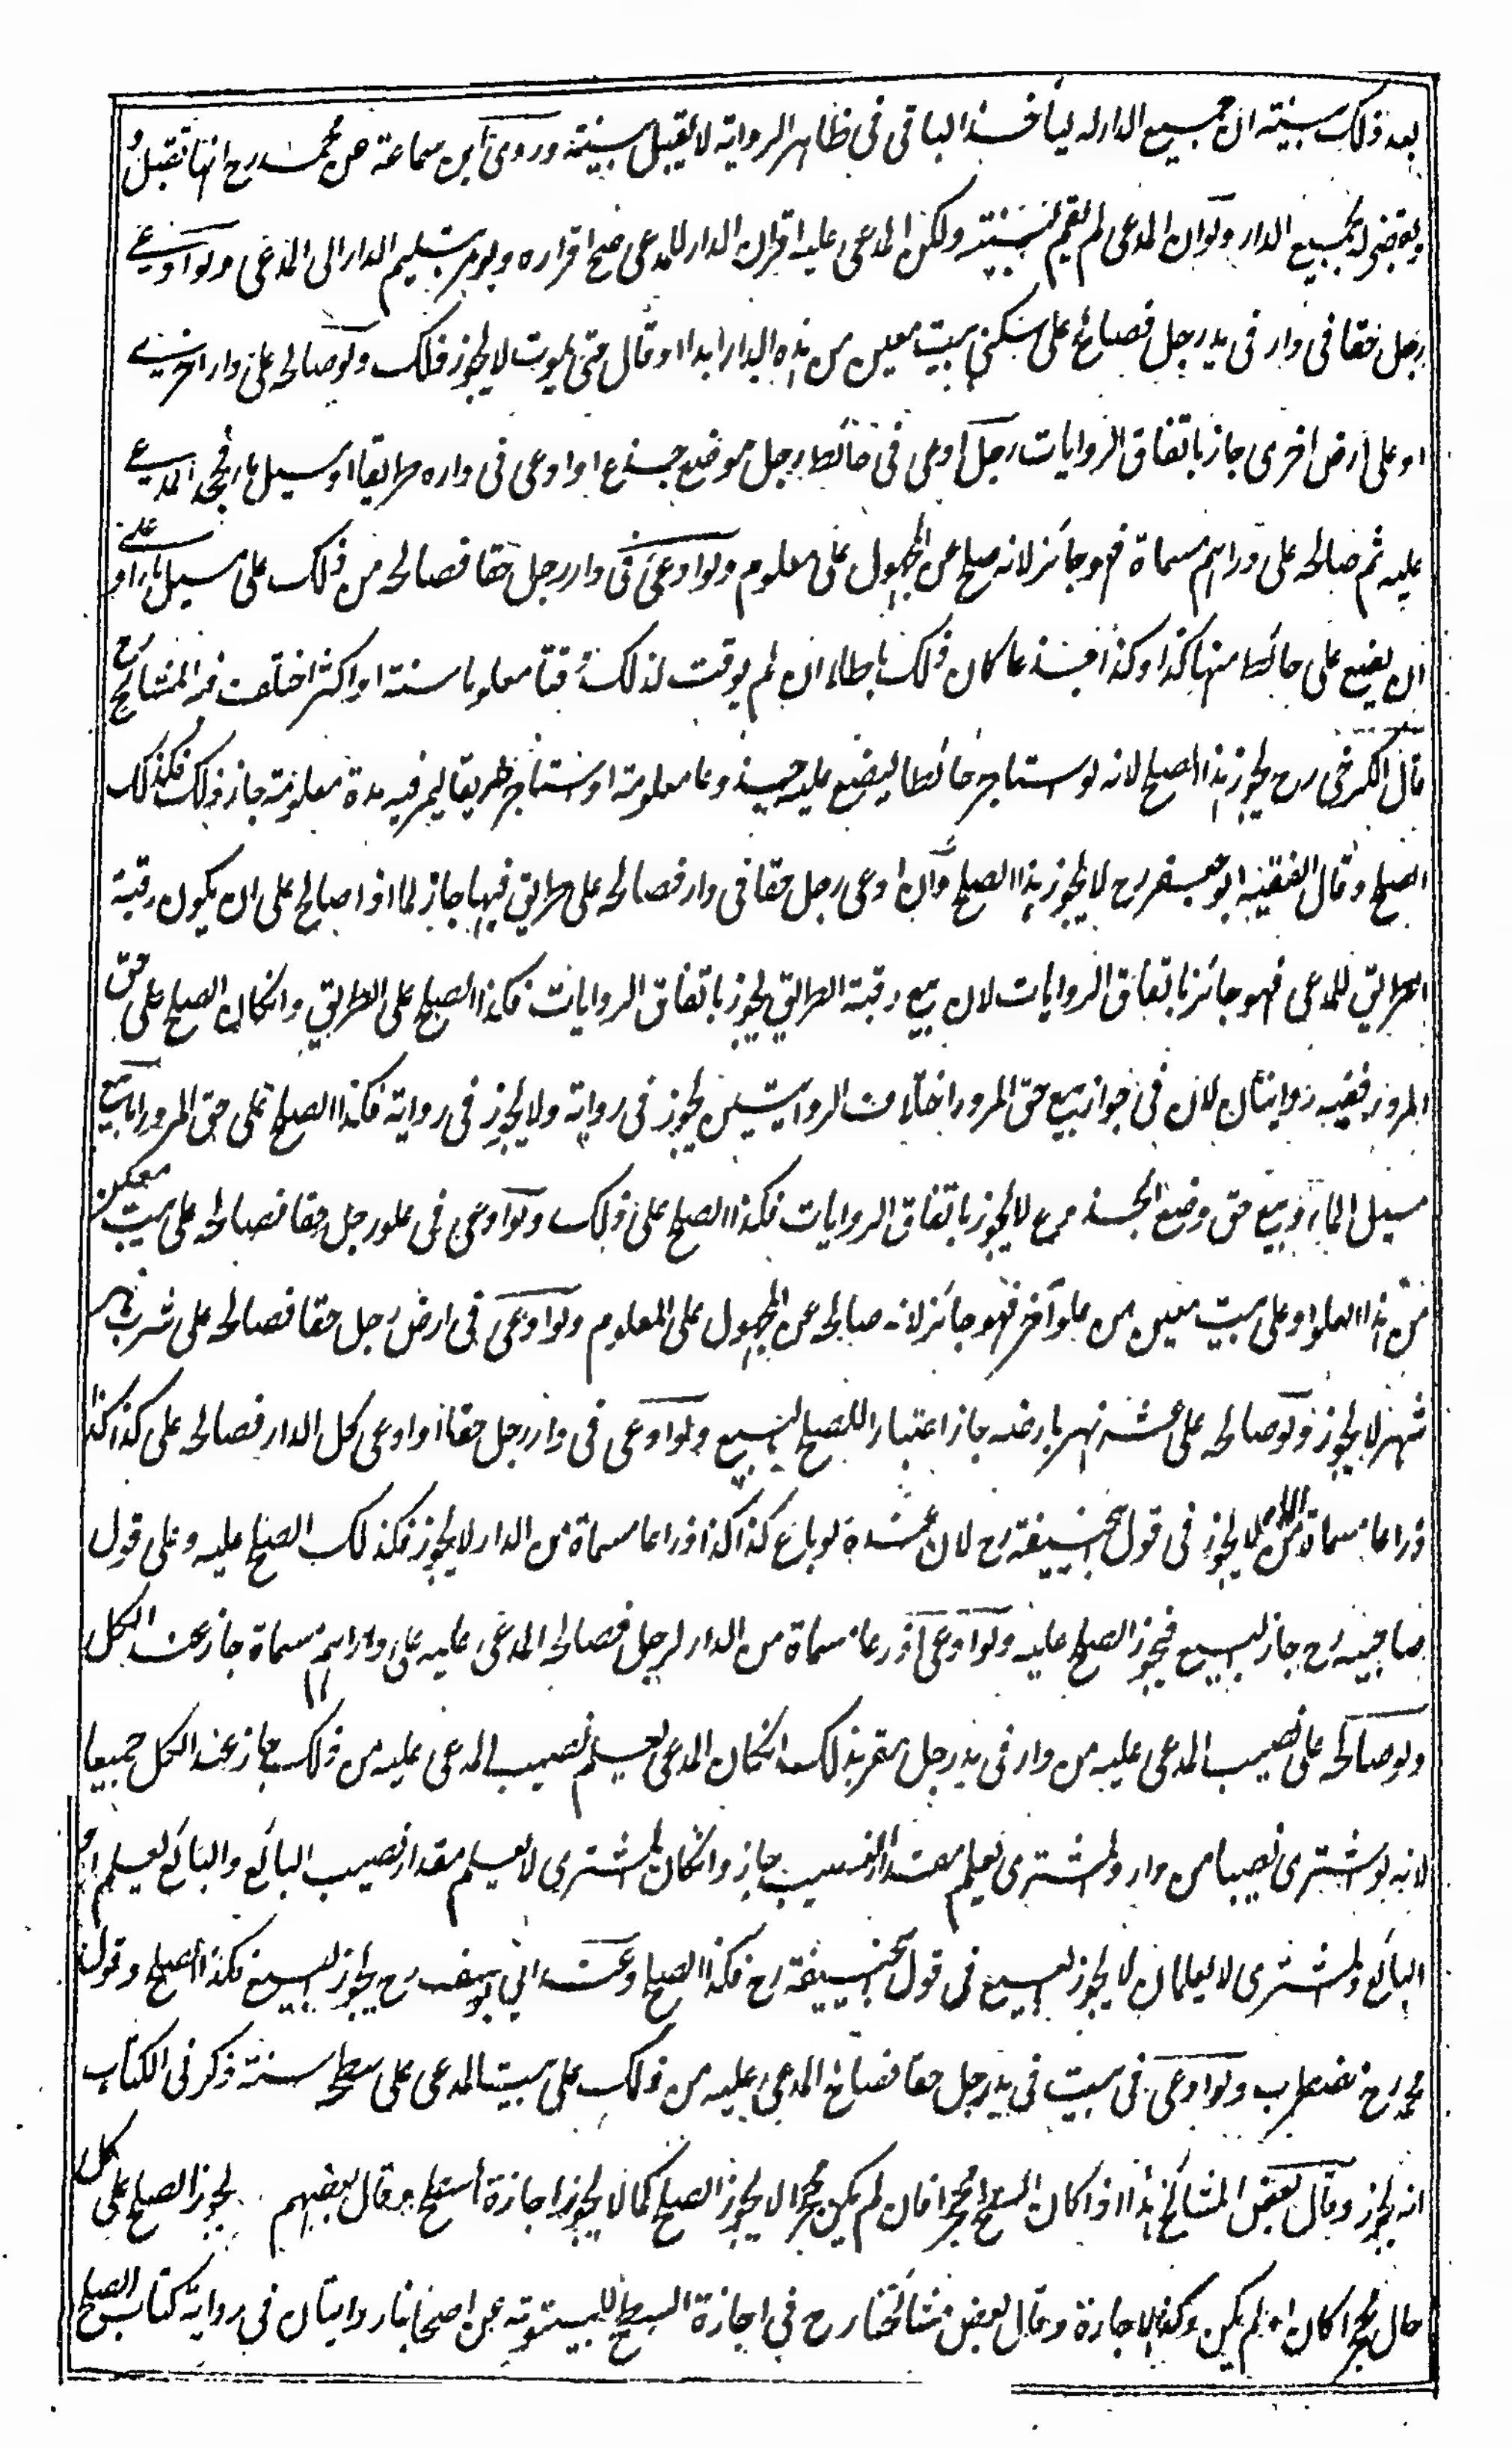 بعد ذلك بينة ان جميع الدار له ليأخذ الباقي في ظاهر الرواية لا يقبل بينته وروى ابن سماعة عن محمد رح انها تقبل
ويقضى له بجميع الدار ولو ان المدعي لم يقم البينة ولكن المدعى عليه اقر ان الدار للمدعي صح اقراره ويومر بتسليم الدار الى المدعي ولو ادعى
رجل حقا في دار في يد رجل فصالح على سكنى بيت معين من هذه الدار ابدا او قال حتى يموت لا يجوز ذلك ولو صالحه على دار اخرى
او على ارض اخرى جاز باتفاق الروايات رجل ادعى في حائط رجل موضع جذع او ادعى في داره طريقا او مسيل ماء فجحد المدعى
عليه ثم صالحه على دراهم مسماة فهو جائز لانه صلح عن المجهول على معلوم ولو ادعى في دار رجل حقا فصالحه من ذلك على مسيل ماء او على
ان يضع على حائط منها كذا وكذا جذعا كان ذلك باطلا ان لم يوقت لذلك وقتا معلوما سنة او اكثر اختلف فيه المشائخ رح
قال الكرخي رح يجوز هذا الصلح لانه لو استاجر حائطا ليضع عليه جذوعا معلومة او استاجر طريقا ليمر فيه مدة معلومة جاز ذلك فكذلك
الصلح وقال الفقيه ابو جعفر رح لا يجوز هذا الصلح وان ادعى رجل حقا في دار فصالحه على طريق فيها جاز لما اذا صالح على ان يكون رقبة
الطريق للمدعي فهو جائز باتفاق الروايات لان بيع رقبة الطريق يجوز باتفاق الروايات فكذا الصلح على الطريق وان كان الصلح على حق
المرور ففيه روايتان لان في جواز بيع حق المرور اختلاف الروايتين يجوز في رواية ولا يجوز في رواية فكذا الصلح على حق المرور اما بيع
مسيل الماء وبيع حق وضع الجذوع لا يجوز باتفاق الروايات فكذا الصلح على ذلك ولو ادعى في علو رجل حقا فصالحه على بيت معين
من هذا العلو او على بيت معين من علو آخر فهو جائز لانه صالحه عن المجهول على المعلوم ولو ادعى في ارض رجل حقا فصالحه على شرب نهر
شهرا لا يجوز ولو صالحه على عشر نهر بارضه جاز اعتبارا للصلح بالبيع ولو ادعى في دار رجل حقا او ادعى كل الدار فصالحه على كذا كذا
ذراعا مسماة من الدار لا يجوز في قول ابي حنيفة رح لان عنده لو باع كذا كذا ذراعا مسماة من الدار لا يجوز فكذلك الصلح عليه وعلى قول
صاحبيه رح جاز البيع فيجوز الصلح عليه ولو ادعى اذرعا مسماة من الدار لرجل فصالحه المدعى عليه على دراهم مسماة جاز عند الكل
ولو صالحه على نصيب المدعى عليه من دار في يد رجل مقر بذلك ان كان المدعي يعلم نصيب المدعى عليه من ذلك جاز عند الكل جميعا
لانه لو اشترى نصيبا من دار والمشتري يعلم مقدار النصيب جاز وان كان المشتري لا يعلم مقدار نصيب البائع والبائع يعلم او
البائع والمشتري لا يعلمان لا يجوز البيع في قول ابي حنيفة رح فكذا الصلح وعند ابي يوسف رح يجوز البيع فكذا الصلح وقول
محمد رح مضطرب ولو ادعى في بيت في يد رجل حقا فصالح المدعى عليه من ذلك على بيت المدعي على سطحه سنة ذكر في الكتاب
انه يجوز وقال بعض المشائخ هذا اذا كان السطح محجرا فان لم يكن محجرا لا يجوز الصلح كما لا يجوز اجازة السطح وقال بعضهم يجوز الصلح على كل
حال محجرا كان او لم يكن وكذا الاجارة وقال بعض مشائخنا رح في اجازة السطح للبيتوتة عن اصحابنا روايتان في رواية كتاب الصلح